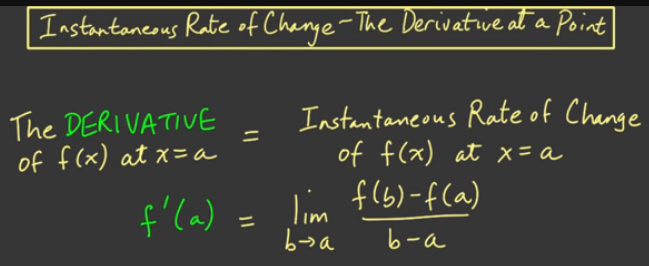 Instantaneous Rate of Change - The Derivative at a Point
The DERIVATIVE of f(x) at x=a = Instantaneous Rate of Change of f(x) at x=a
f'(a) = lim b→a f(b)-f(a) / b-a